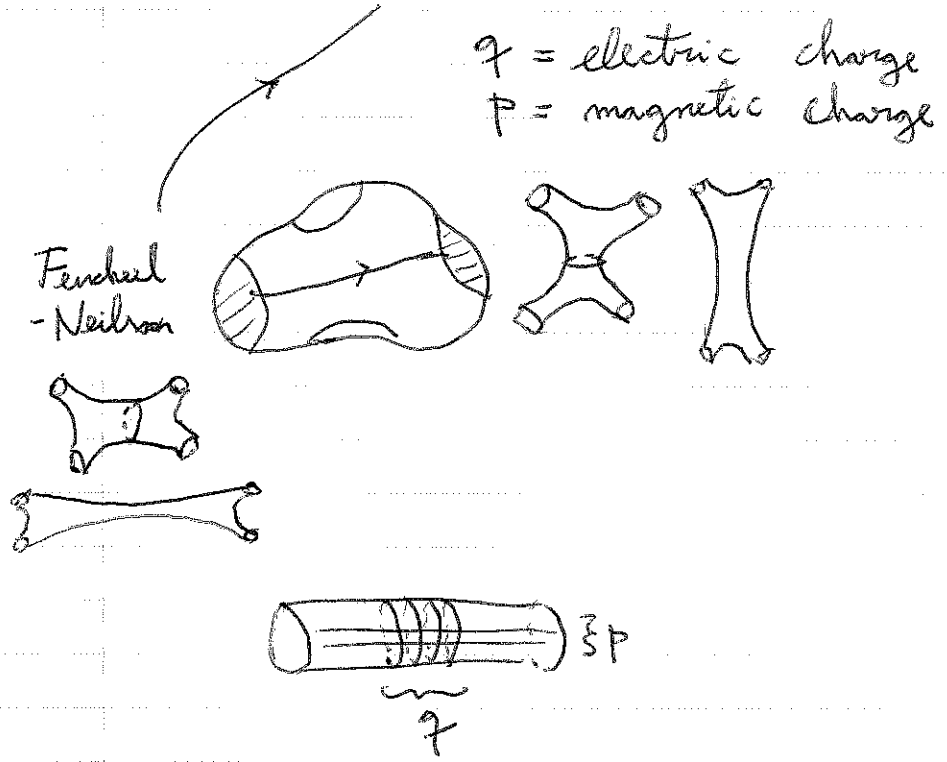 q = electric charge
p = magnetic charge
Fenchel
-Neilson
p
q